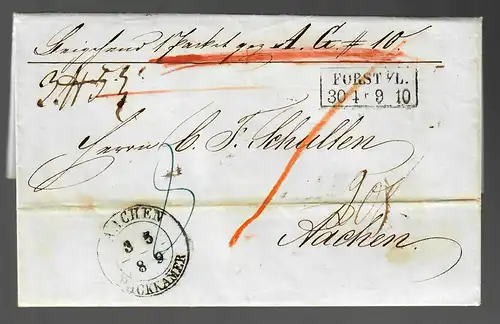 Beigehend 1 Packet gez A. A # 10.
3 # 5
FORST I/L.
30 4 * 9 10
Herrn C. F. Schulten
Aachen.
AACHEN
3 5
8 9
PACKKAMER